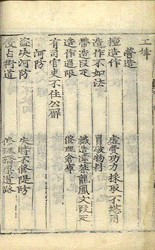 工律
營造
擅造作 虛費工力採取不堪用
造作不如法 冒破物料
帶造段疋 織造違禁龍鳳文段疋
造作過限 修理倉庫
有司官吏不住公廨
河防
盜決河防 失時不修隄防
侵占街道 修理橋梁道路